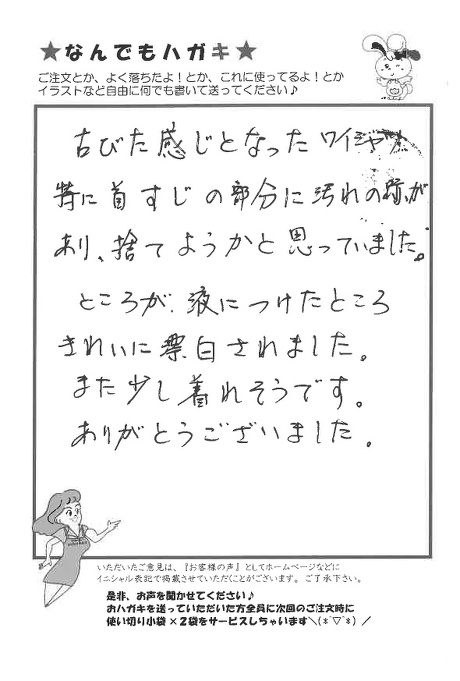 ★なんでもハガキ★
ご注文とか、よく落ちたよ！とか、これに使ってるよ！とか
イラストなど自由に何でも書いて送ってください♪
古びた感じとなったワイシャツ
特に首すじの部分に汚れの線が
あり、捨てようかと思っていました。
ところが、液につけたところ
きれいに漂白されました。
また少し着れそうです。
ありがとうございました。
いただいたご意見は、『お客様の声』としてホームページなどに
イニシャル表記で掲載させていただくことがございます。ご了承下さい。
是非、お声を聞かせてください♪
おハガキを送っていただいた方全員に次回のご注文時に
使い切り小袋×２袋をサービスしちゃいます＼(*ˊ▽ˋ*)／